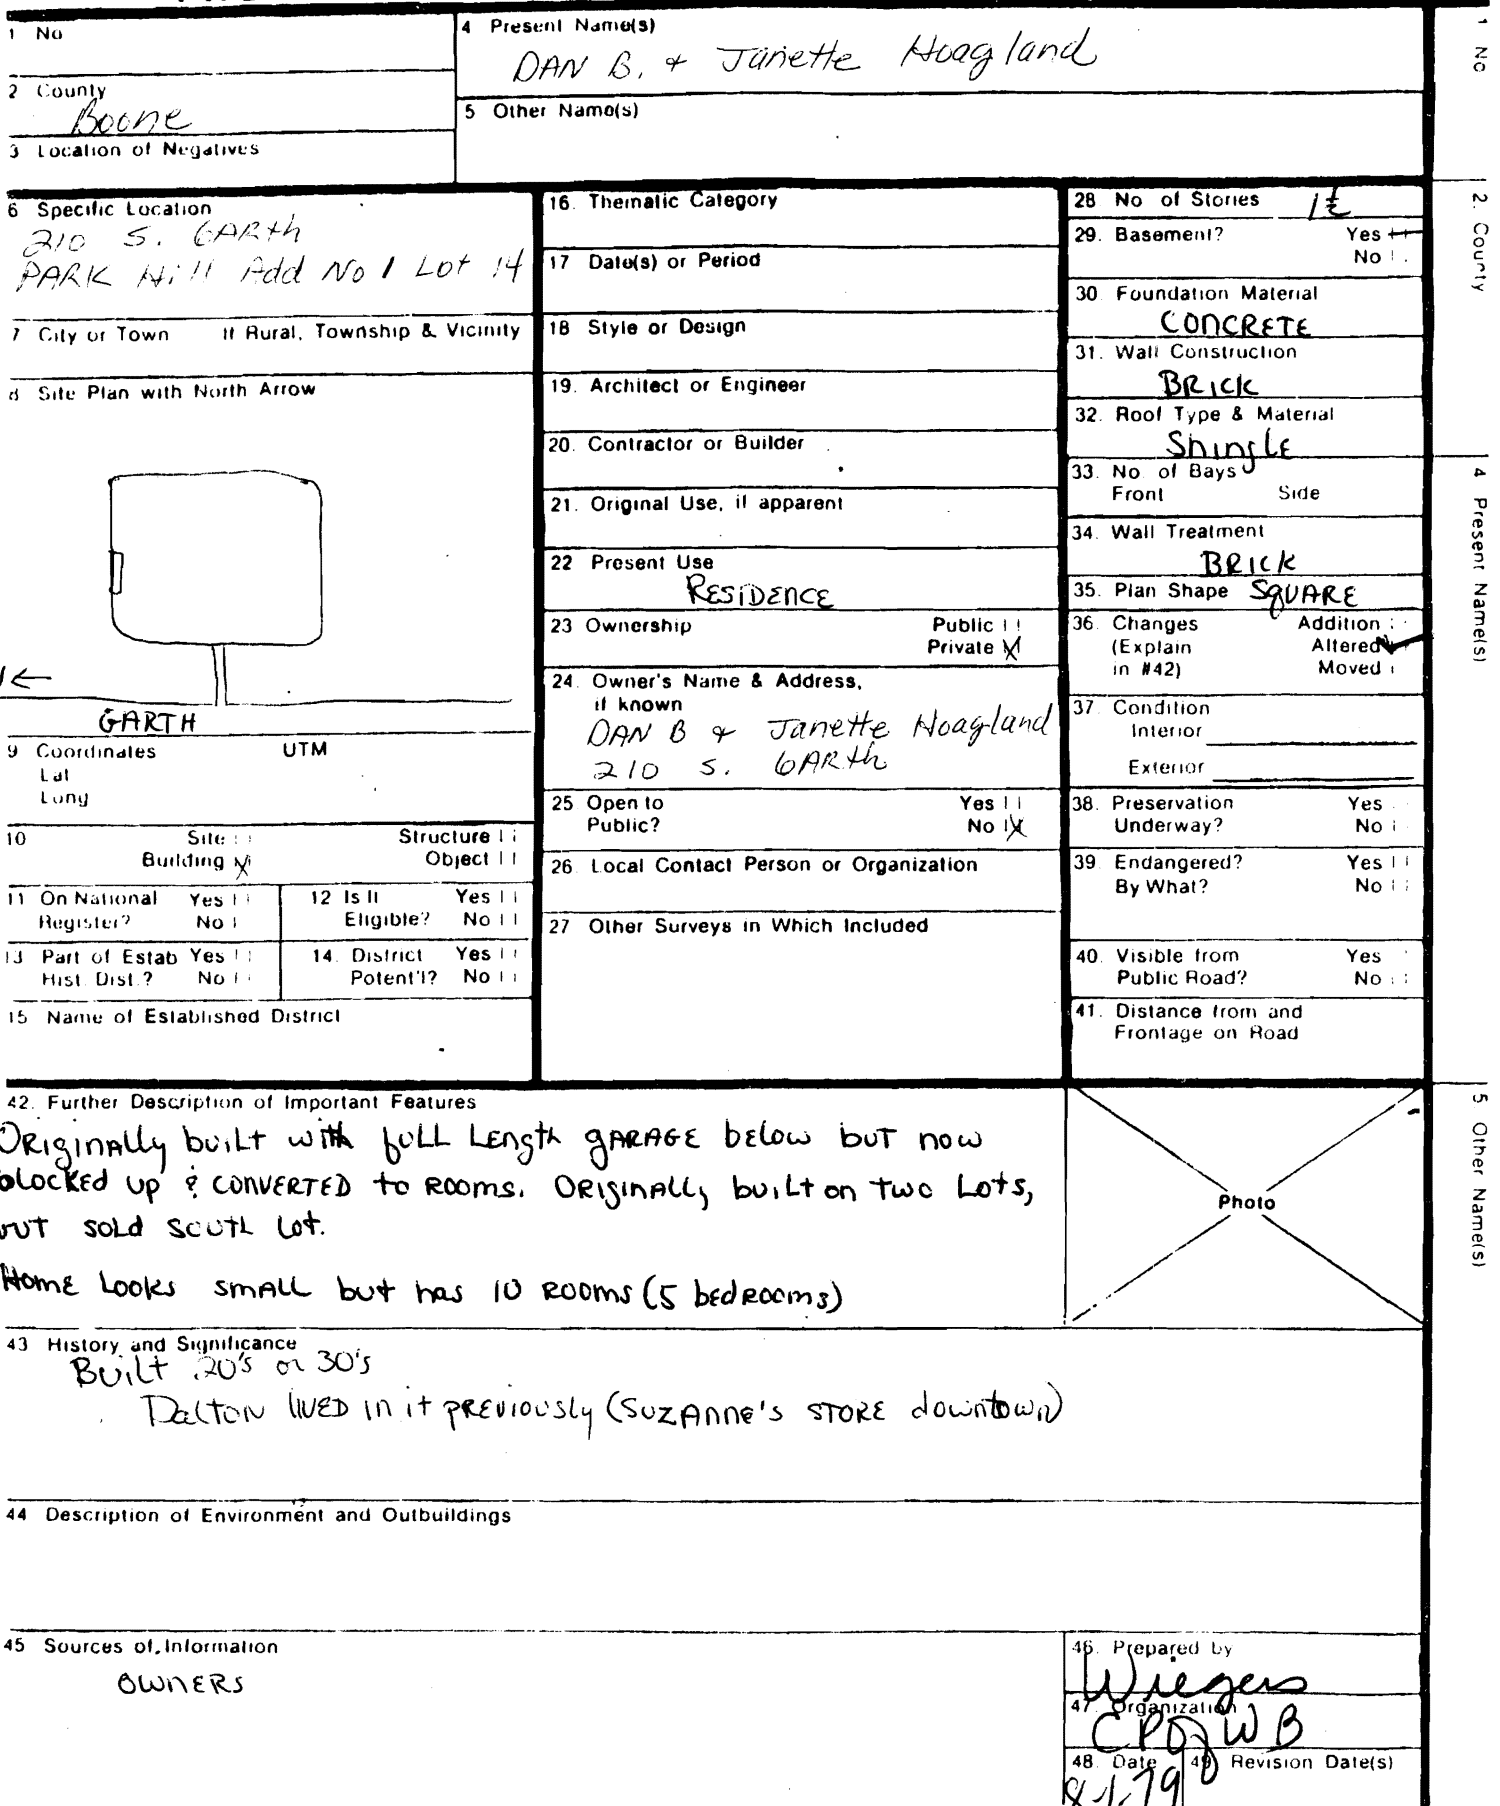 1 No
4 Present Name(s)
DAN B. & Janette Hoagland
2 County
Boone
5 Other Name(s)
3 Location of Negatives
6 Specific Location
210 S. GARth
PARK Hill Add No 1 Lot 14
7 City or Town If Rural, Township & Vicinity
8 Site Plan with North Arrow
GARTH
9 Coordinates UTM
Lat
Long
10 Site Structure
Building X Object
11 On National Register? Yes No
12 Is It Eligible? Yes No
13 Part of Estab Hist. Dist.? Yes No
14. District Potent'l? Yes No
15 Name of Established District
16. Thematic Category
17 Date(s) or Period
18 Style or Design
19. Architect or Engineer
20. Contractor or Builder
21. Original Use, if apparent
22 Present Use
RESIDENCE
23 Ownership Public
Private X
24. Owner's Name & Address,
if known
DAN B & Janette Hoagland
210 S. GARth
25 Open to Yes
Public? No X
26. Local Contact Person or Organization
27 Other Surveys in Which Included
28 No of Stories 1½
29. Basement? Yes
No
30. Foundation Material
CONCRETE
31. Wall Construction
BRICK
32. Roof Type & Material
Shingle
33. No. of Bays
Front Side
34. Wall Treatment
BRICK
35. Plan Shape SQUARE
36. Changes Addition
(Explain Altered ✓
in #42) Moved
37. Condition
Interior
Exterior
38. Preservation Yes
Underway? No
39. Endangered? Yes
By What? No
40. Visible from Yes
Public Road? No
41. Distance from and
Frontage on Road
42. Further Description of Important Features
ORiginally built with full Length gARAGE below but now
blocked up & CONVERTED to ROOMS. ORiginALLy built on two Lots,
but sold South Lot.
Home Looks smALL but has 10 ROOMS (5 bedrooms)
Photo
43 History and Significance
Built 20's or 30's
Dalton lived in it previously (Suzanne's store downtown)
44 Description of Environment and Outbuildings
45 Sources of Information
OWNERS
46. Prepared by
Wiegers
47. Organization
48. Date 49. Revision Date(s)
1 No
2. County
4 Present Name(s)
5 Other Name(s)